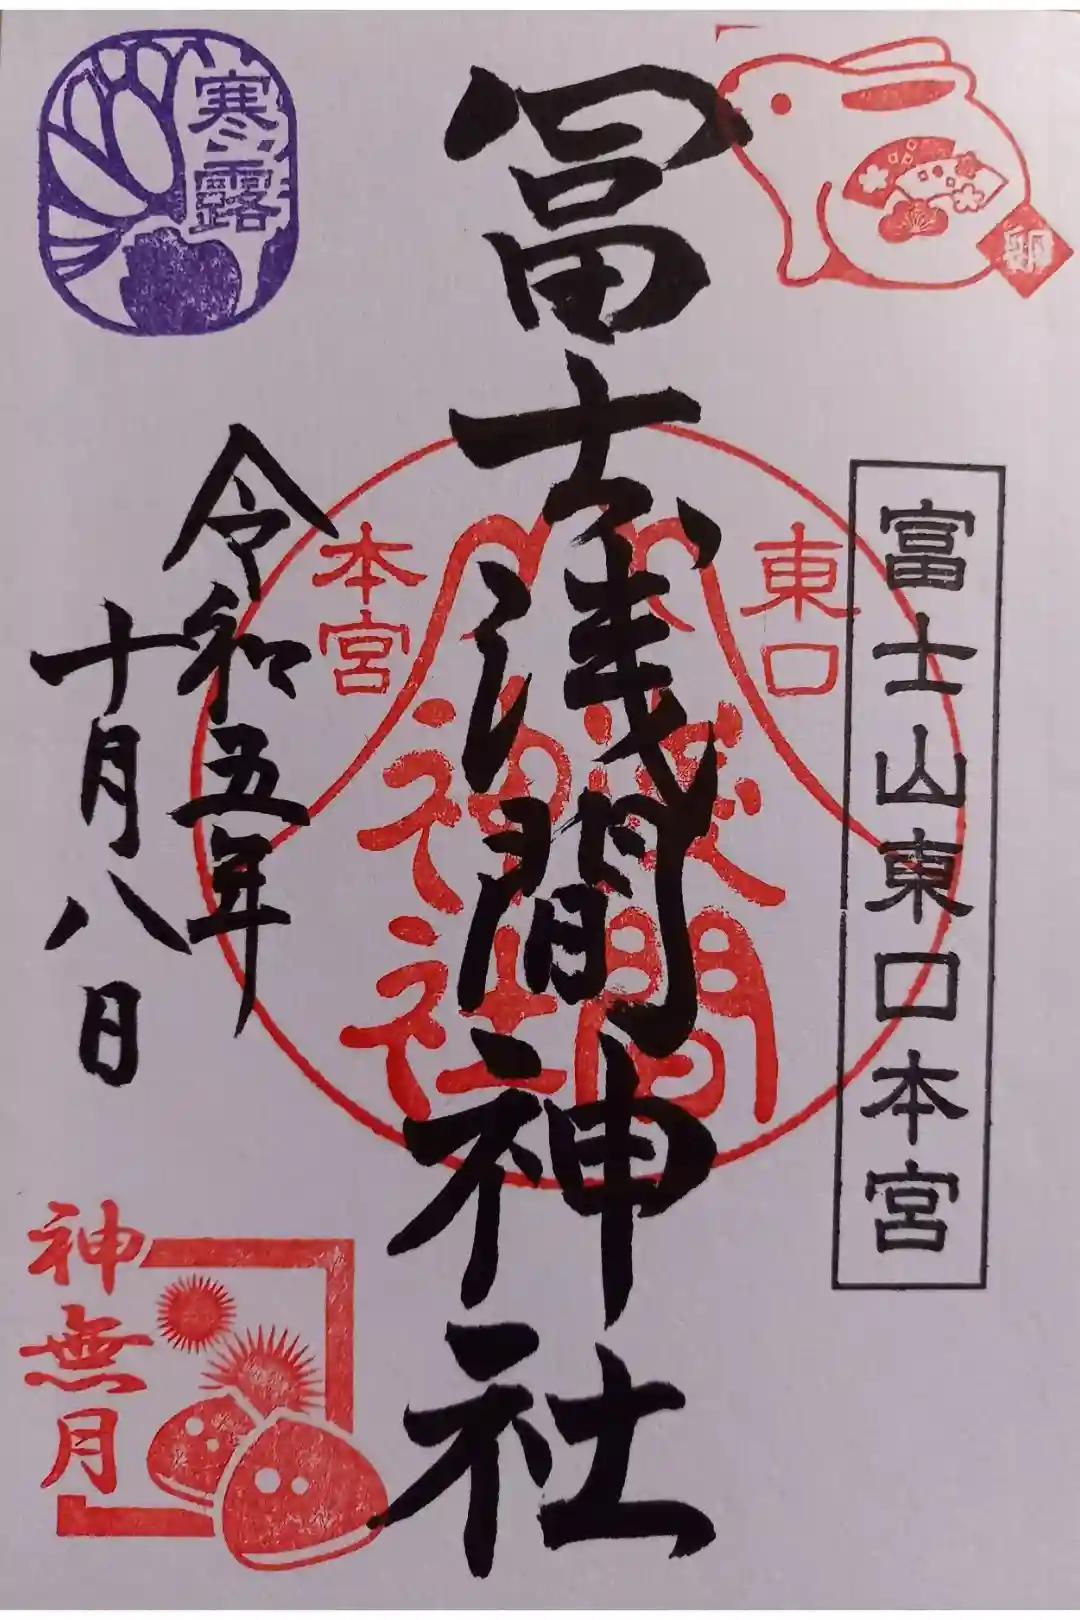 卯
富士山東口本宮
冨士浅間神社
東口
本宮
浅間
神社
寒露
令和五年
十月八日
神無月